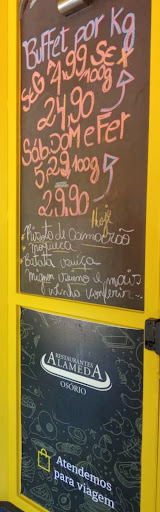 Buffet por Kg
SeG 4,99 SeX
100g
24,90
Sáb.DOM e Fer
5,29 100g
29,90
Hoje
Risoto de Camarão
moqueca
Batata suíça
Mignon suíno e mais
venha conferir
RESTAURANTES
ALAMEDA
OSÓRIO
Atendemos
para viagem